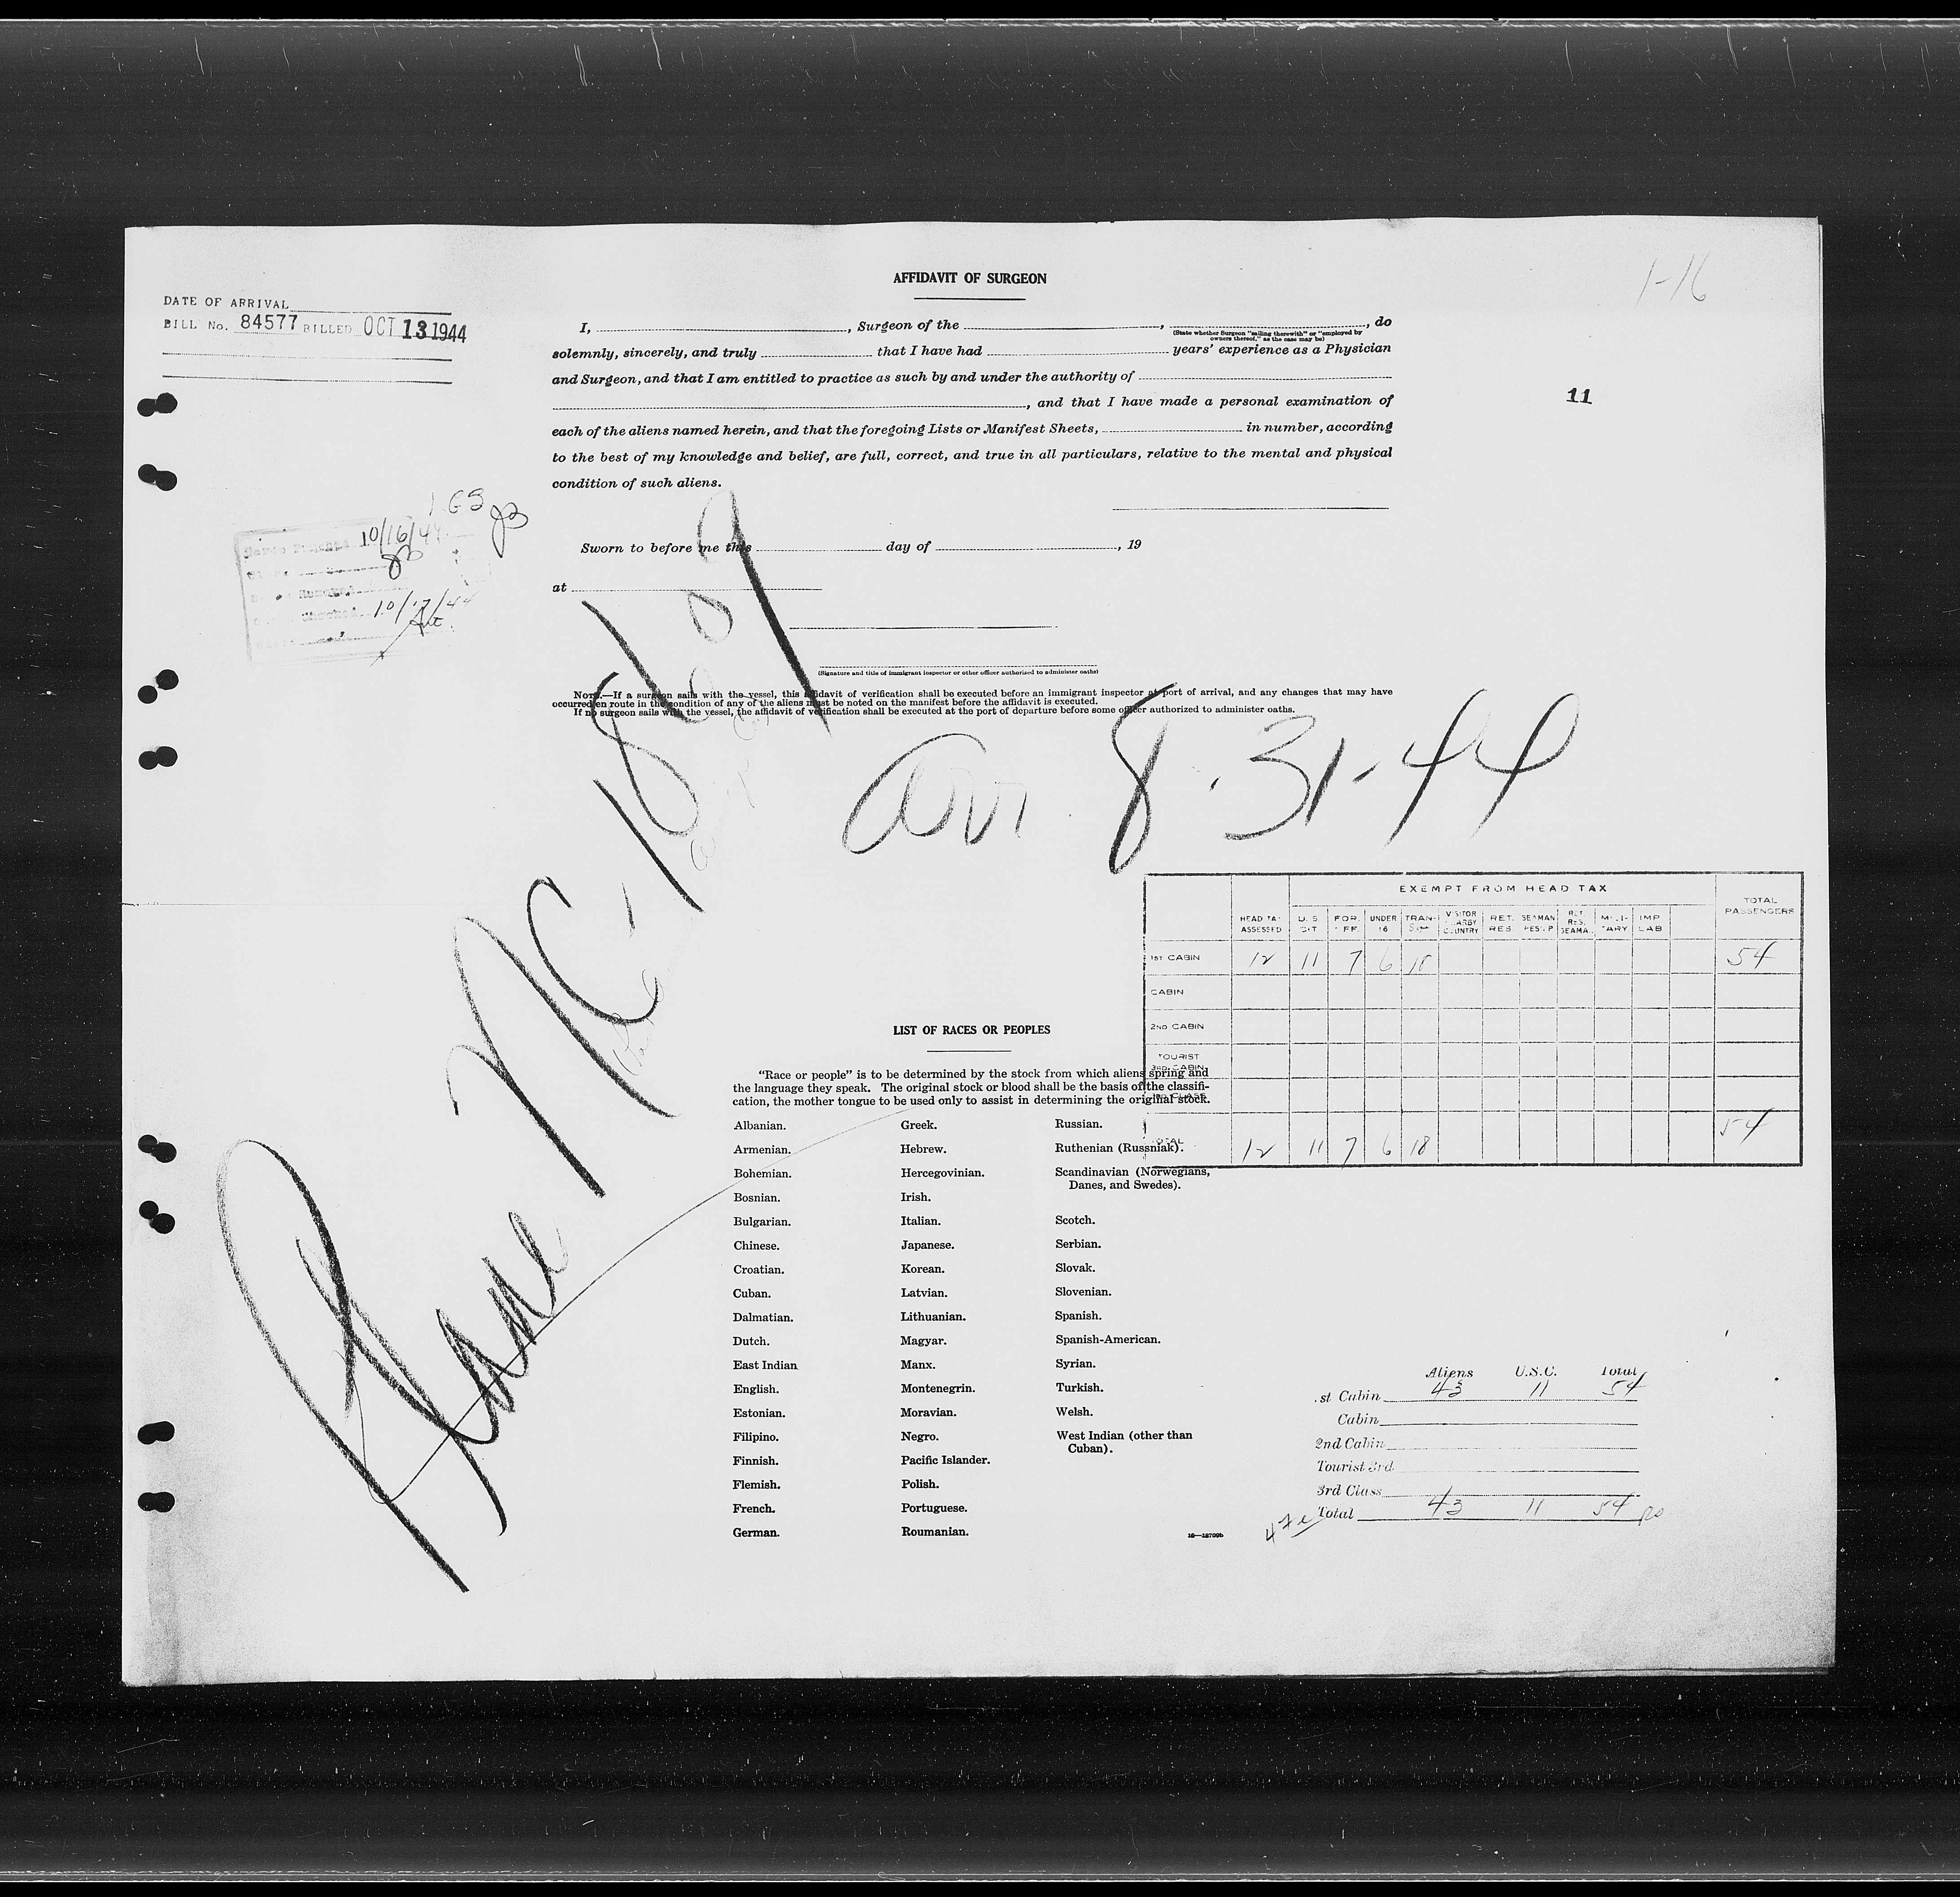 AFFIDAVIT OF SURGEON
1-16
DATE OF ARRIVAL
BILL No. 84577 BILLED OCT 13 1944
I, , Surgeon of the , , do
(State whether Surgeon "sailing therewith" or "employed by owners thereof," as the case may be)
solemnly, sincerely, and truly that I have had years' experience as a Physician
and Surgeon, and that I am entitled to practice as such by and under the authority of
, and that I have made a personal examination of
11
each of the aliens named herein, and that the foregoing Lists or Manifest Sheets, in number, according
to the best of my knowledge and belief, are full, correct, and true in all particulars, relative to the mental and physical
condition of such aliens.
10/16/44
10/17/44
Sworn to before me this day of , 19
at
(Signature and title of immigrant inspector or other officer authorized to administer oaths)
NOTE.—If a surgeon sails with the vessel, this affidavit of verification shall be executed before an immigrant inspector at port of arrival, and any changes that may have
occurred en route in the condition of any of the aliens must be noted on the manifest before the affidavit is executed.
If no surgeon sails with the vessel, the affidavit of verification shall be executed at the port of departure before some officer authorized to administer oaths.
Plane NC-18609
arr. 8-31-44
EXEMPT FROM HEAD TAX
HEAD TAX ASSESSED U.S. CIT FOR. OFF. UNDER 16 TRAN- VISITOR NEARBY COUNTRY RET. RES. SEAMAN RET. RES. SEAMA. MILI- TARY IMP LAB TOTAL PASSENGERS
1ST CABIN 12 11 7 6 18 54
CABIN
2ND CABIN
TOURIST
3RD CABIN
TOTAL 12 11 7 6 18 54
LIST OF RACES OR PEOPLES
"Race or people" is to be determined by the stock from which aliens spring and
the language they speak. The original stock or blood shall be the basis of the classifi-
cation, the mother tongue to be used only to assist in determining the original stock.
Albanian.
Armenian.
Bohemian.
Bosnian.
Bulgarian.
Chinese.
Croatian.
Cuban.
Dalmatian.
Dutch.
East Indian
English.
Estonian.
Filipino.
Finnish.
Flemish.
French.
German.
Greek.
Hebrew.
Hercegovinian.
Irish.
Italian.
Japanese.
Korean.
Latvian.
Lithuanian.
Magyar.
Manx.
Montenegrin.
Moravian.
Negro.
Pacific Islander.
Polish.
Portuguese.
Roumanian.
Russian.
Ruthenian (Russniak).
Scandinavian (Norwegians,
Danes, and Swedes).
Scotch.
Serbian.
Slovak.
Slovenian.
Spanish.
Spanish-American.
Syrian.
Turkish.
Welsh.
West Indian (other than
Cuban).
16—18709b
Aliens U.S.C. Total
st Cabin 43 11 54
Cabin
2nd Cabin
Tourist 3rd
3rd Class
Total 43 11 54